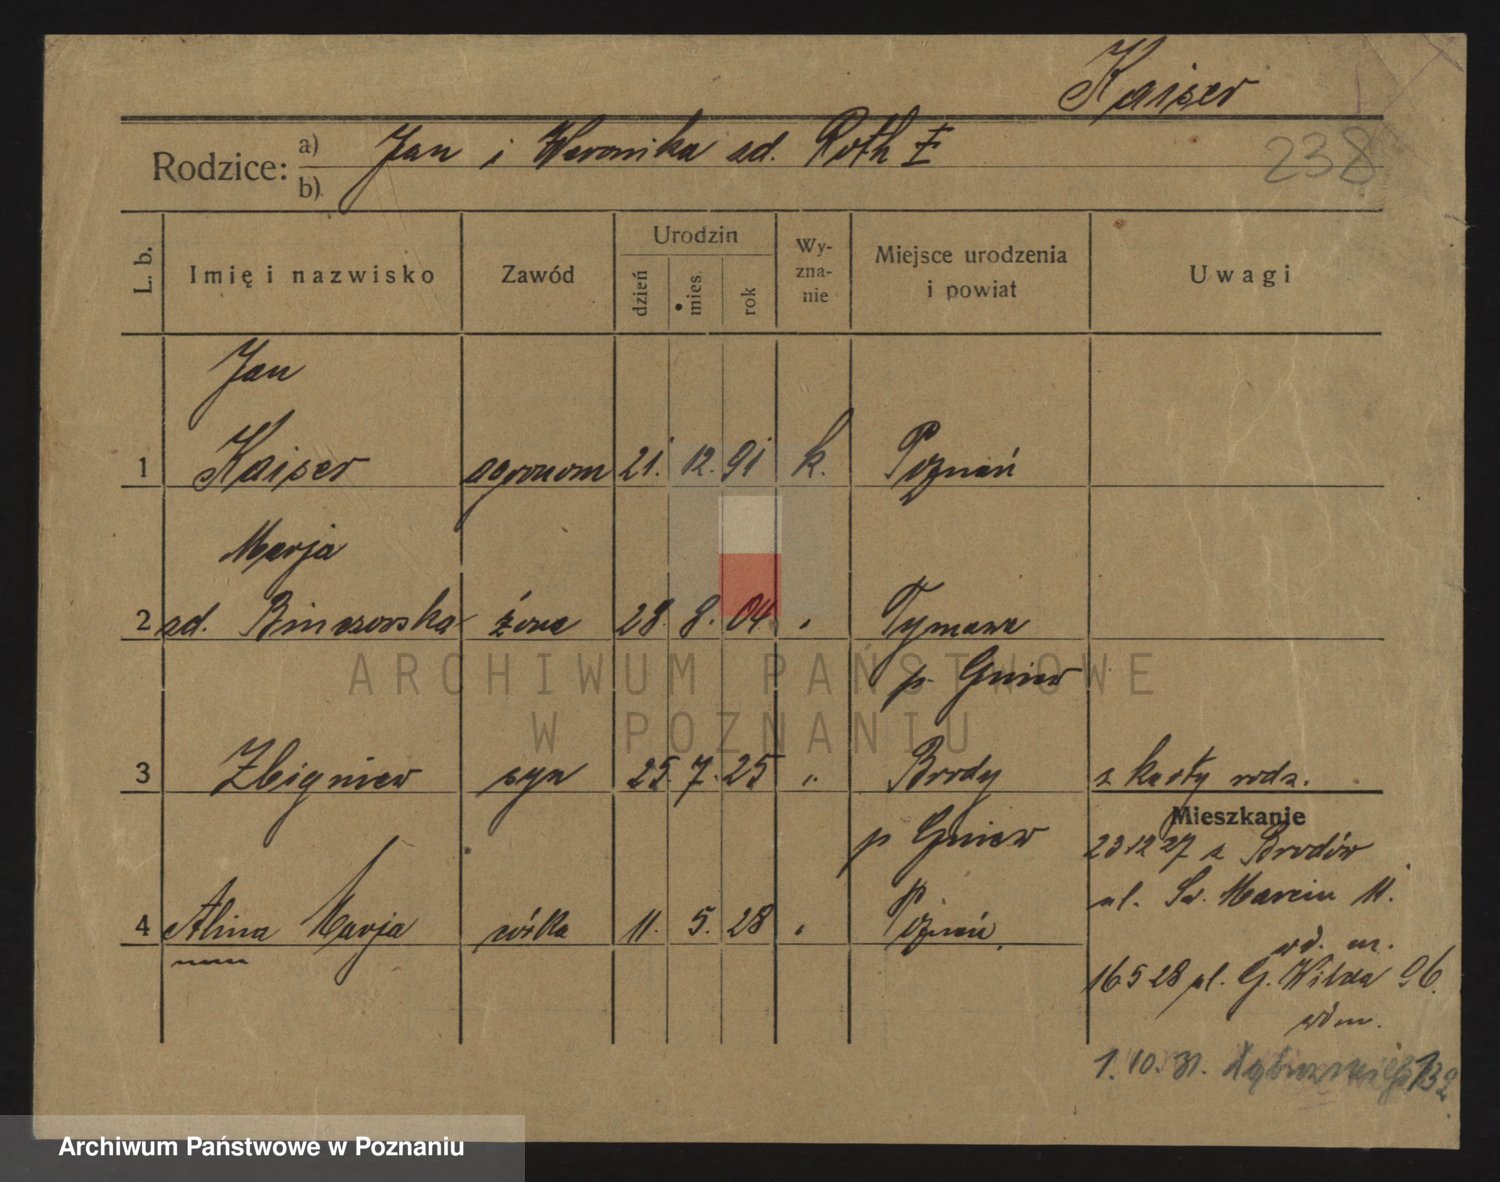 Kaiser
Rodzice: a) Jan i Weronika zd. Roth
b)
238
L. b.
Imię i nazwisko
Zawód
Urodzin
dzień
mies.
rok
Wy-
zna-
nie
Miejsce urodzenia
i powiat
Uwagi
Jan
1 Kaiser agronom 21. 12. 91 k. Poznań
Marja
2 zd. żona 28. 8. 04. " Tymawa
p. Gniew
ARCHIWUM PAŃSTWOWE
W POZNANIU
3 Zbigniew syn 25. 7. 25 " Brody z karty rodz.
Mieszkanie
p Gniew 23 12 27 z Brodów
ul. Św. Marcin 11.
4 Alina Marja córka 11. 5. 28 " Poznań.
16 5 28 ul. G. Wilda 96.
1. 10. 31. 132
Archiwum Państwowe w Poznaniu